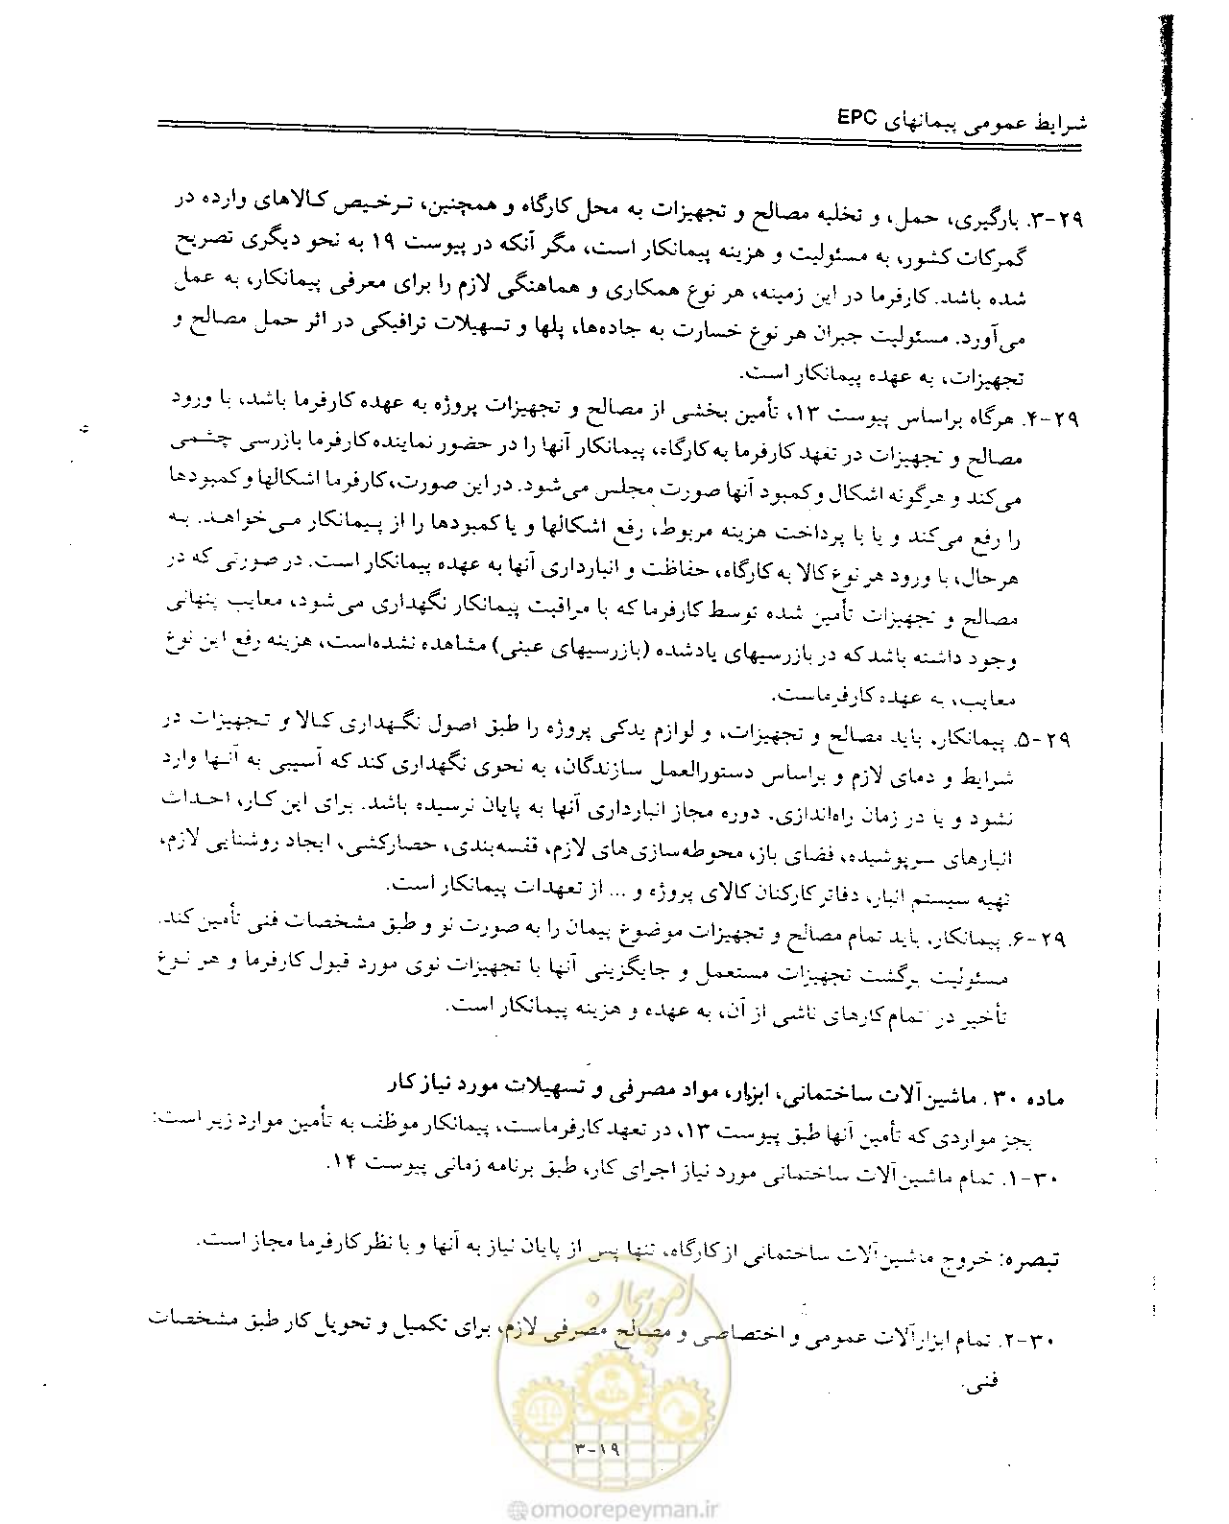 شرایط عمومی پیمانهای EPC
۲۹-۳. بارگیری، حمل، و تخلیه مصالح و تجهیزات به محل کارگاه و همچنین، ترخیص کالاهای وارده در
گمرکات کشور، به مسئولیت و هزینه پیمانکار است، مگر آنکه در پیوست ۱۹ به نحو دیگری تصریح
شده باشد. کارفرما در این زمینه، هر نوع همکاری و هماهنگی لازم را برای معرفی پیمانکار، به عمل
می‌آورد. مسئولیت جبران هر نوع خسارت به جاده‌ها، پلها و تسهیلات ترافیکی در اثر حمل مصالح و
تجهیزات، به عهده پیمانکار است.
۲۹-۴. هرگاه براساس پیوست ۱۳، تأمین بخشی از مصالح و تجهیزات پروژه به عهده کارفرما باشد، با ورود
مصالح و تجهیزات در تعهد کارفرما به کارگاه، پیمانکار آنها را در حضور نماینده کارفرما بازرسی چشمی
می‌کند و هرگونه اشکال و کمبود آنها صورت مجلس می‌شود. در این صورت، کارفرما اشکالها و کمبودها
را رفع می‌کند و یا با پرداخت هزینه مربوط، رفع اشکالها و یا کمبودها را از پیمانکار می‌خواهد. به
هرحال، با ورود هر نوع کالا به کارگاه، حفاظت و انبارداری آنها به عهده پیمانکار است. در صورتی که در
مصالح و تجهیزات تأمین شده توسط کارفرما که با مراقبت پیمانکار نگهداری می‌شود، معایب پنهانی
وجود داشته باشد که در بازرسیهای یادشده (بازرسیهای عینی) مشاهده نشده‌است، هزینه رفع این نوع
معایب، به عهده کارفرماست.
۲۹-۵. پیمانکار، باید مصالح و تجهیزات، و لوازم یدکی پروژه را طبق اصول نگهداری کالا و تجهیزات در
شرایط و دمای لازم و براساس دستورالعمل سازندگان، به نحوی نگهداری کند که آسیبی به آنها وارد
نشود و یا در زمان راه‌اندازی، دوره مجاز انبارداری آنها به پایان نرسیده باشد. برای این کار، احداث
انبارهای سرپوشیده، فضای باز، محوطه‌سازی‌های لازم، قفسه‌بندی، حصارکشی، ایجاد روشنایی لازم،
تهیه سیستم انبار، دفاتر کارکنان کالای پروژه و ... از تعهدات پیمانکار است.
۲۹-۶. پیمانکار، باید تمام مصالح و تجهیزات موضوع پیمان را به صورت نو و طبق مشخصات فنی تأمین کند.
مسئولیت برگشت تجهیزات مستعمل و جایگزینی آنها با تجهیزات نوی مورد قبول کارفرما و هر نوع
تأخیر در تمام کارهای ناشی از آن، به عهده و هزینه پیمانکار است.
ماده ۳۰. ماشین‌آلات ساختمانی، ابزار، مواد مصرفی و تسهیلات مورد نیاز کار
بجز مواردی که تأمین آنها طبق پیوست ۱۳، در تعهد کارفرماست، پیمانکار موظف به تأمین موارد زیر است:
۳۰-۱. تمام ماشین‌آلات ساختمانی مورد نیاز اجرای کار، طبق برنامه زمانی پیوست ۱۴.
تبصره: خروج ماشین‌آلات ساختمانی از کارگاه، تنها پس از پایان نیاز به آنها و با نظر کارفرما مجاز است.
۳۰-۲. تمام ابزارآلات عمومی و اختصاصی و مصالح مصرفی لازم، برای تکمیل و تحویل کار طبق مشخصات
فنی.
امور پیمان
۳-۱۹
@omoorepeyman.ir